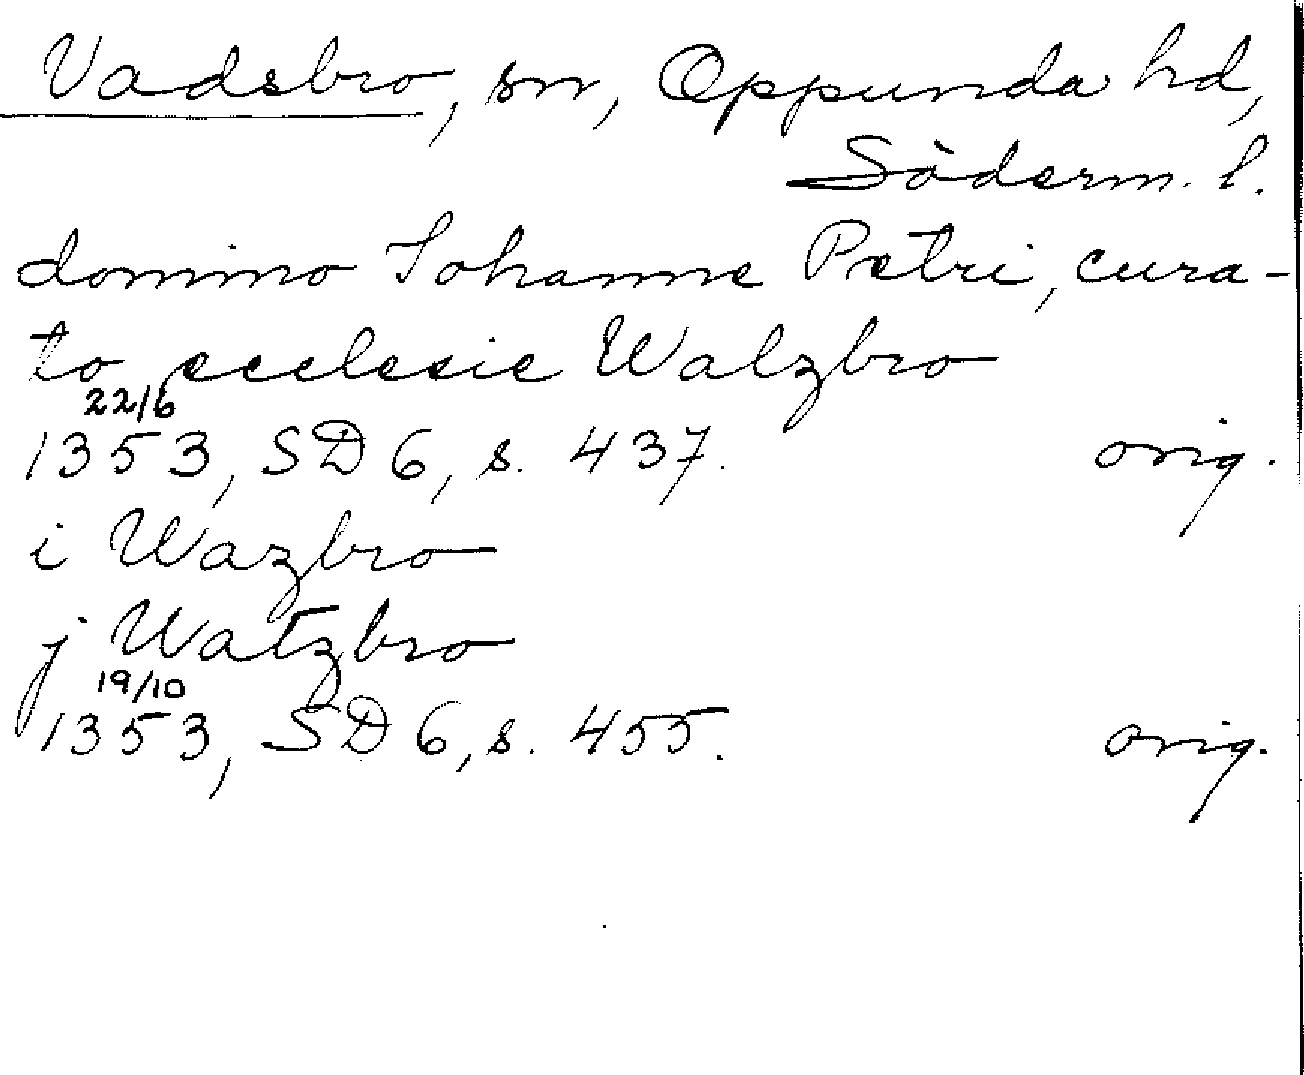 Vadsbro, sn, Oppunda hd,
Söderm. l.
domino Iohanne Petri, cura-
to ecclesie Walzbro
22/6
1353, SD 6, s. 437. orig.
i Wazbro
j Watzbro
19/10
1353, SD 6, s. 455. orig.